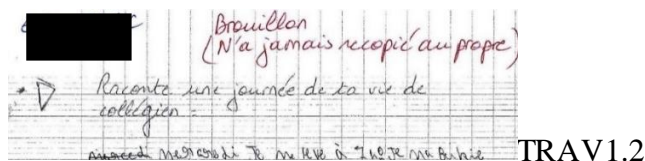 Brouillon
(N'a jamais recopié au propre)
Raconte une journée de ta vie de
collégien :
mercredi Je me leve à
TRAV1.2